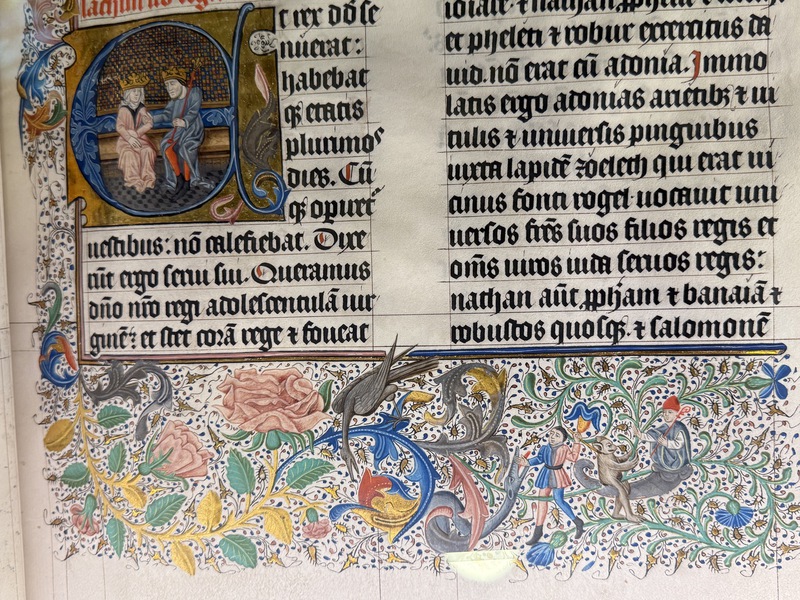 t rex dō se
nuerat:
habebat
qꝫ etatis
plurimos
dies. Cū
qꝫ operiret᷑
uestibus: nō calefiebat. Dixe
rūt ergo serui sui. Queramus
dño nrō regi adolescentulā uir
ginē: et stet corā rege ⁊ foueat
et pheleti et robur exercitus da
uid. nō erat cū adonia. Immo
latis ergo adonias arietibꝫ ⁊ ui
tulis ⁊ uniuersis pinguibus
iuxta lapidē zoeleth qui erat ui
cinus fonti rogel. uocauit uni
uersos frēs suos filios regis et
om̄s uiros iuda seruos regis:
nathan aūt ꝓphām ⁊ banaiā ⁊
robustos quosqꝫ. ⁊ salomonē